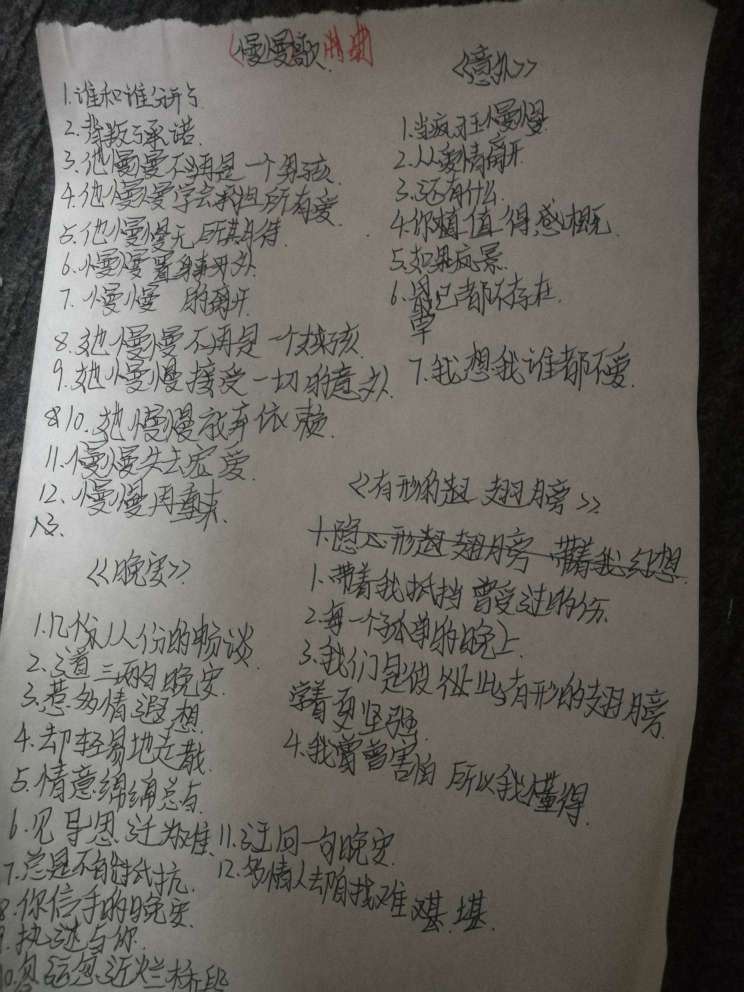 <慢慢歌
1.谁和谁分开与
2.背叛了承诺.
3.他慢慢不再是一个男孩.
4.他慢慢学会承担所有爱
5.他慢慢无所其待.
6.慢慢置身事外
7.慢慢 的离开
8.她慢慢不再是一个女孩
9.她慢慢接受一切的意义.
10.她慢慢放弃依赖
11.慢慢失去宠爱.
12.慢慢再重来.
13.
<<意外>>
1.当疯狂慢慢
2.从爱情离开
3.还有什么
4.你值值得感概
5.如果风景
6.早已都不存在.
7.我想我谁都不爱.
<<有形的翅 翅膀>>
1.隐心形翅翅膀 带着我幻想
1.带着我抵挡曾受过的伤.
2.每一个孤单的晚上
3.我们是彼此此有形的翅膀
学着更坚强
4.我曾曾害怕 所以我懂得.
<<晚安>>
1.几份1人份的畅谈
2.道三两句晚安.
3.惹多情遐想
4.却轻易地走散.
5.情意绵绵总与
6.见异思迁为难
7.总是不自持抗.
8.你信手的晚安
9.执迷与你.
10.忽远忽近烂桥段
11.迂回一句晚安
12.多情人却自找难堪.堪.